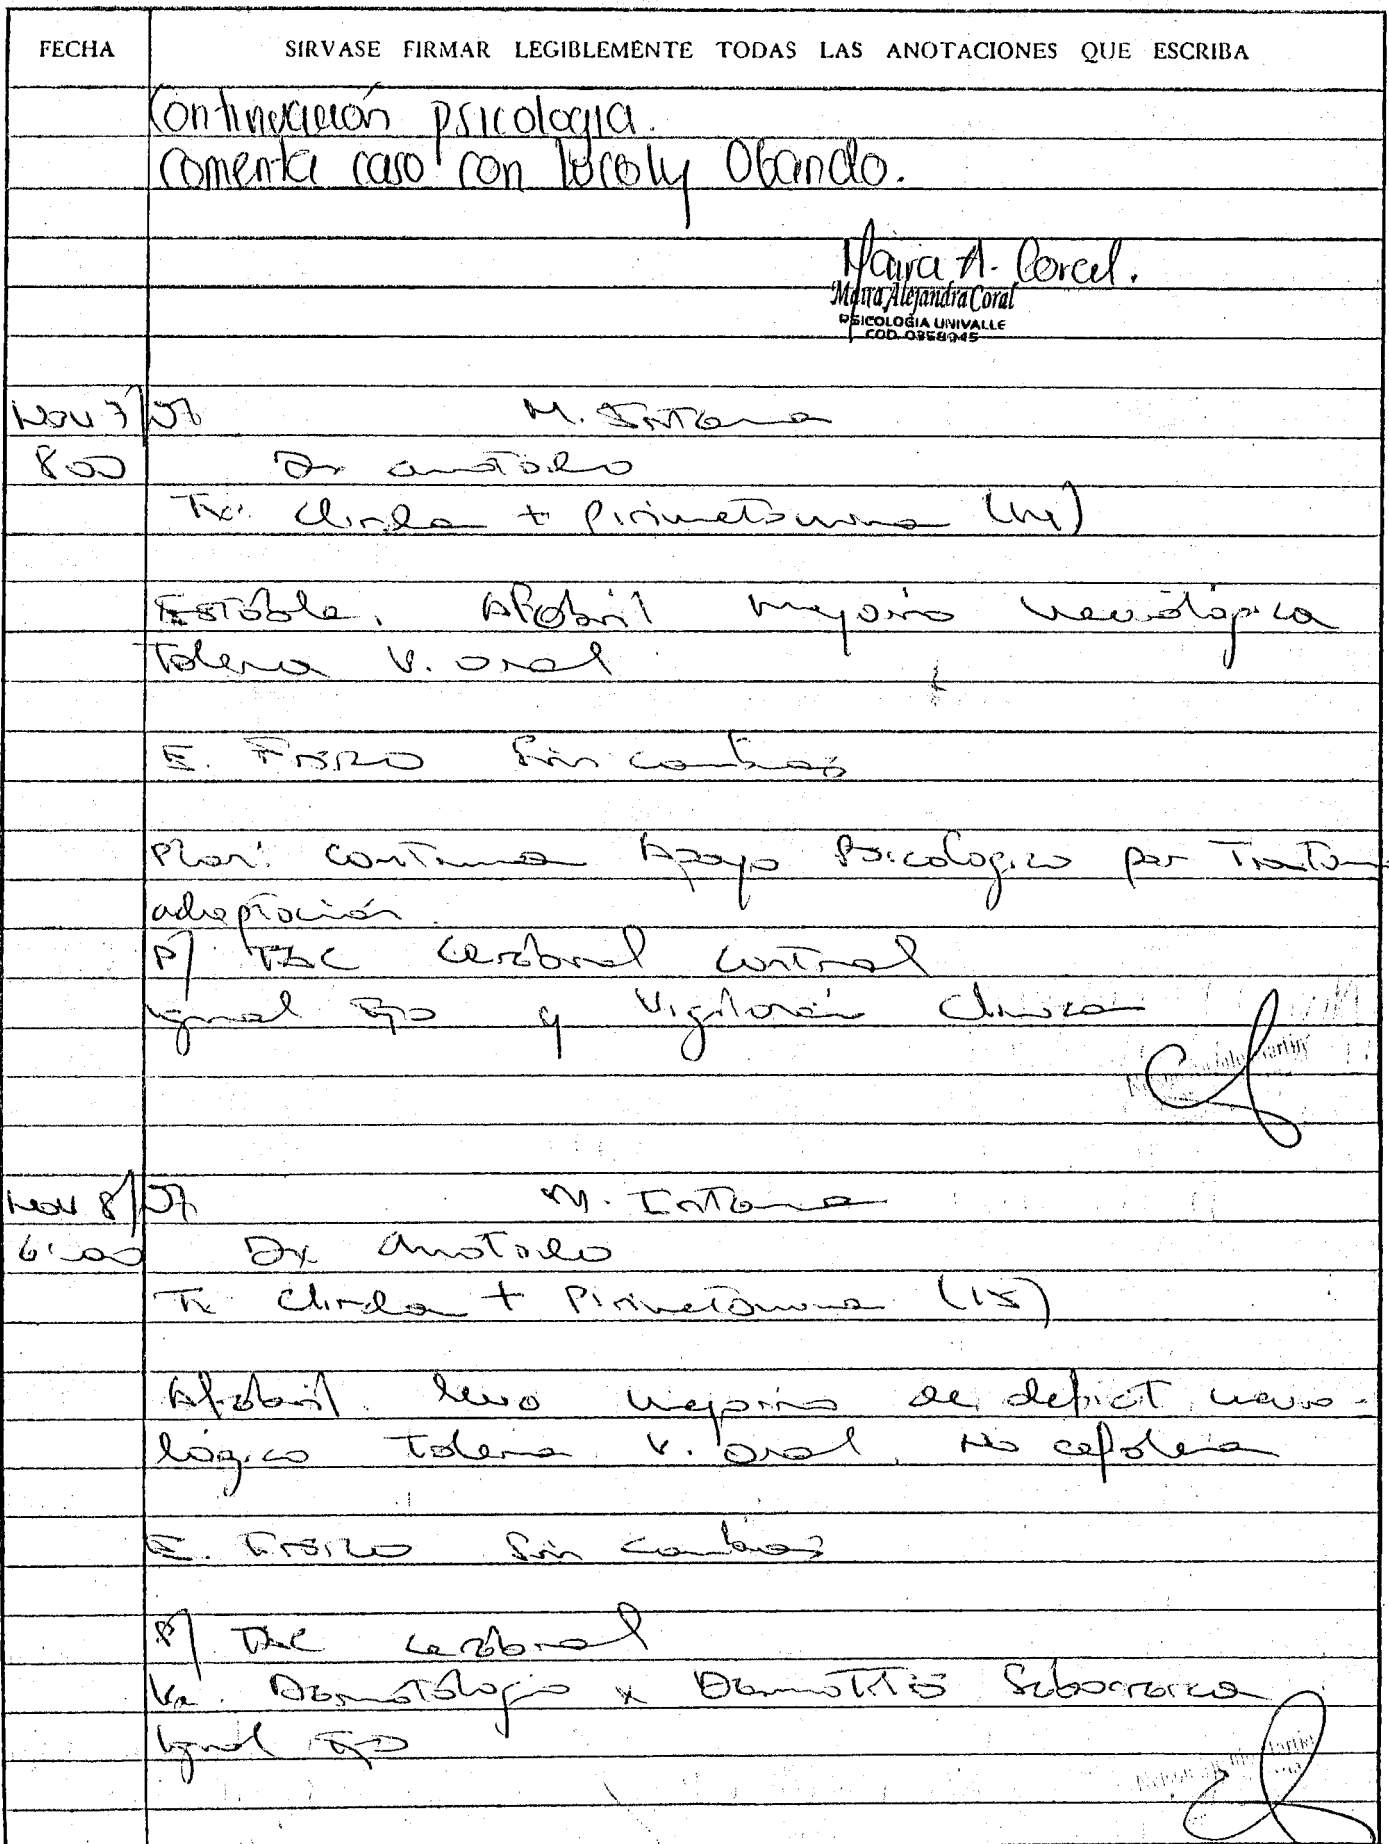 FECHA SIRVASE FIRMAR LEGIBLEMENTE TODAS LAS ANOTACIONES QUE ESCRIBA
Continuación psicologia.
comenta caso con Obando.
Maira A. Coral.
Maira Alejandra Coral
PSICOLOGIA UNIVALLE
COD. 0358945
Nov 7/07 M. Interna
8:00 Dx anotado
Tx: Clinda + Pirimetamina (14)
Estable. Afebril mejoria neurológica
Tolera V. oral
E. Fisico Sin cambios
Plan: continua Apoyo Psicologico por
adaptación.
P/ TAC cerebral control
igual y Vigilancia clinica
Nov 8/07 M. Interna
6:00 Dx Anotado
Tx Clinda + Pirimetamina (15)
Afebril. leve mejoria de deficit neuro-
lógico Tolera V. oral. No cefalea
E. Fisico Sin cambios
P/ TAC cerebral
Va. Dermatologia x Dermatitis Seborreica
Igual